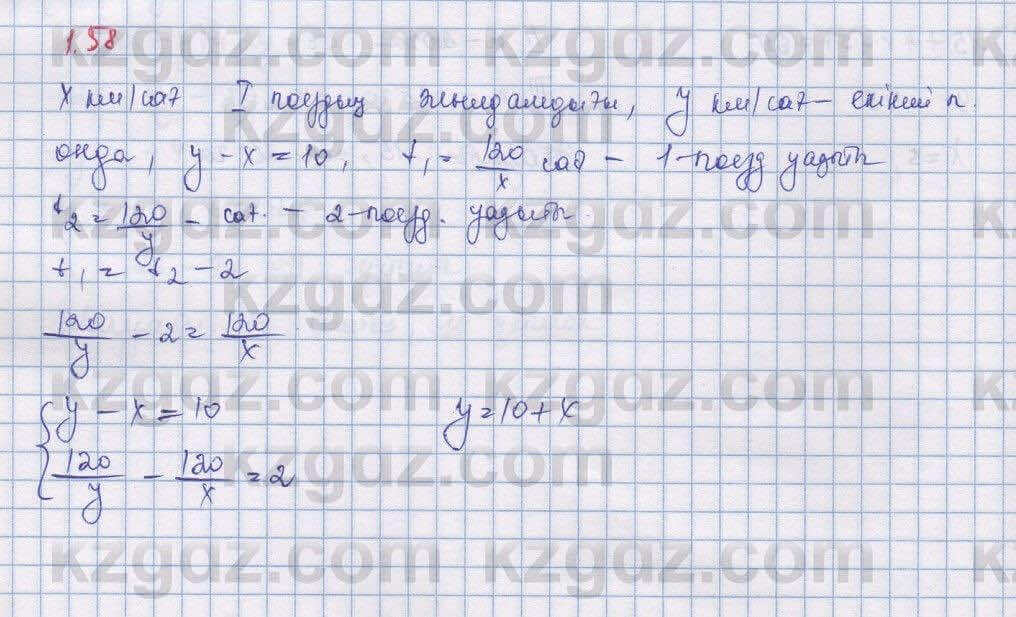 1.58
x км/сағ I поездың жылдамдығы, y км/сағ – екінші п.
онда, y - x = 10, t₁ = 120/x сағ – 1-поезд уақыты
t₂ = 120/y - сағ. – 2-поезд. уақыты.
t₁ = t₂ - 2
120/y - 2 = 120/x
{ y - x = 10 y = 10 + x
120/y - 120/x = 2
kzgdz.com